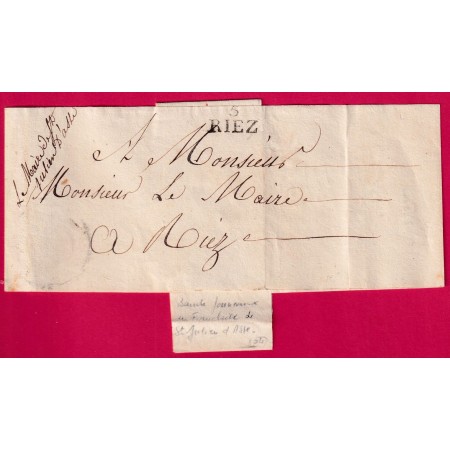 Le Maire de St
Julien d'asse
5
RIEZ
A Monsieur
Monsieur Le Maire
a Riez
en Franchise de
St Julien d'Asse.